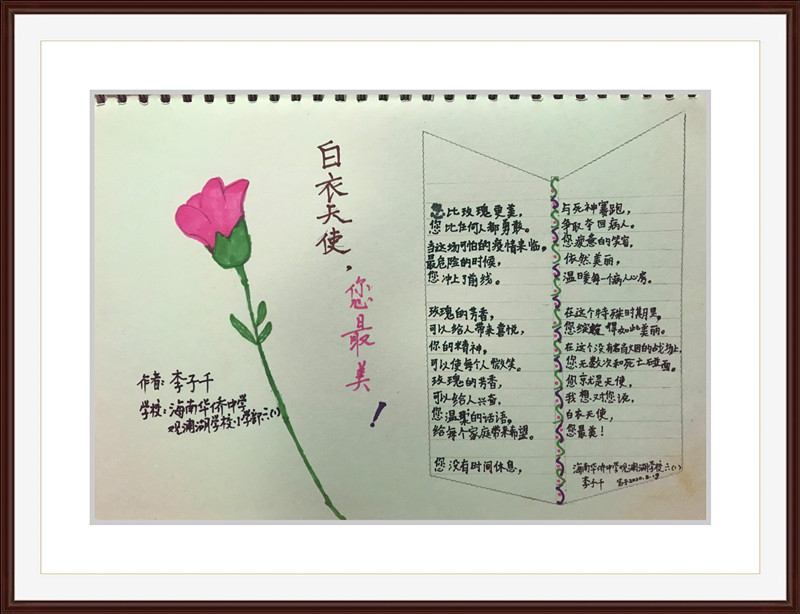 白衣天使，您最美！
作者：李子千
学校：海南华侨中学
观澜湖学校小学部六(1)
您比玫瑰更美，
您比任何人都勇敢。
当这场可怕的疫情来临，
最危险的时候，
您冲上了前线。
玫瑰的芳香，
可以给人带来喜悦，
你的精神，
可以使每个人微笑。
玫瑰的芳香，
可以给人兴奋，
您温柔的话语，
给每个家庭带来希望。
您没有时间休息，
与死神赛跑，
争取夺回病人。
您疲惫的笑容，
依然美丽，
温暖每一个病人心房。
在这个特殊时期里，
您绽放得如此美丽。
在这个没有硝烟的战场上，
您无数次和死亡碰面。
您就是天使，
我想对您说，
白衣天使，
您最美！
海南华侨中学观澜湖学校六(1)
李子千 写于2020.2.18